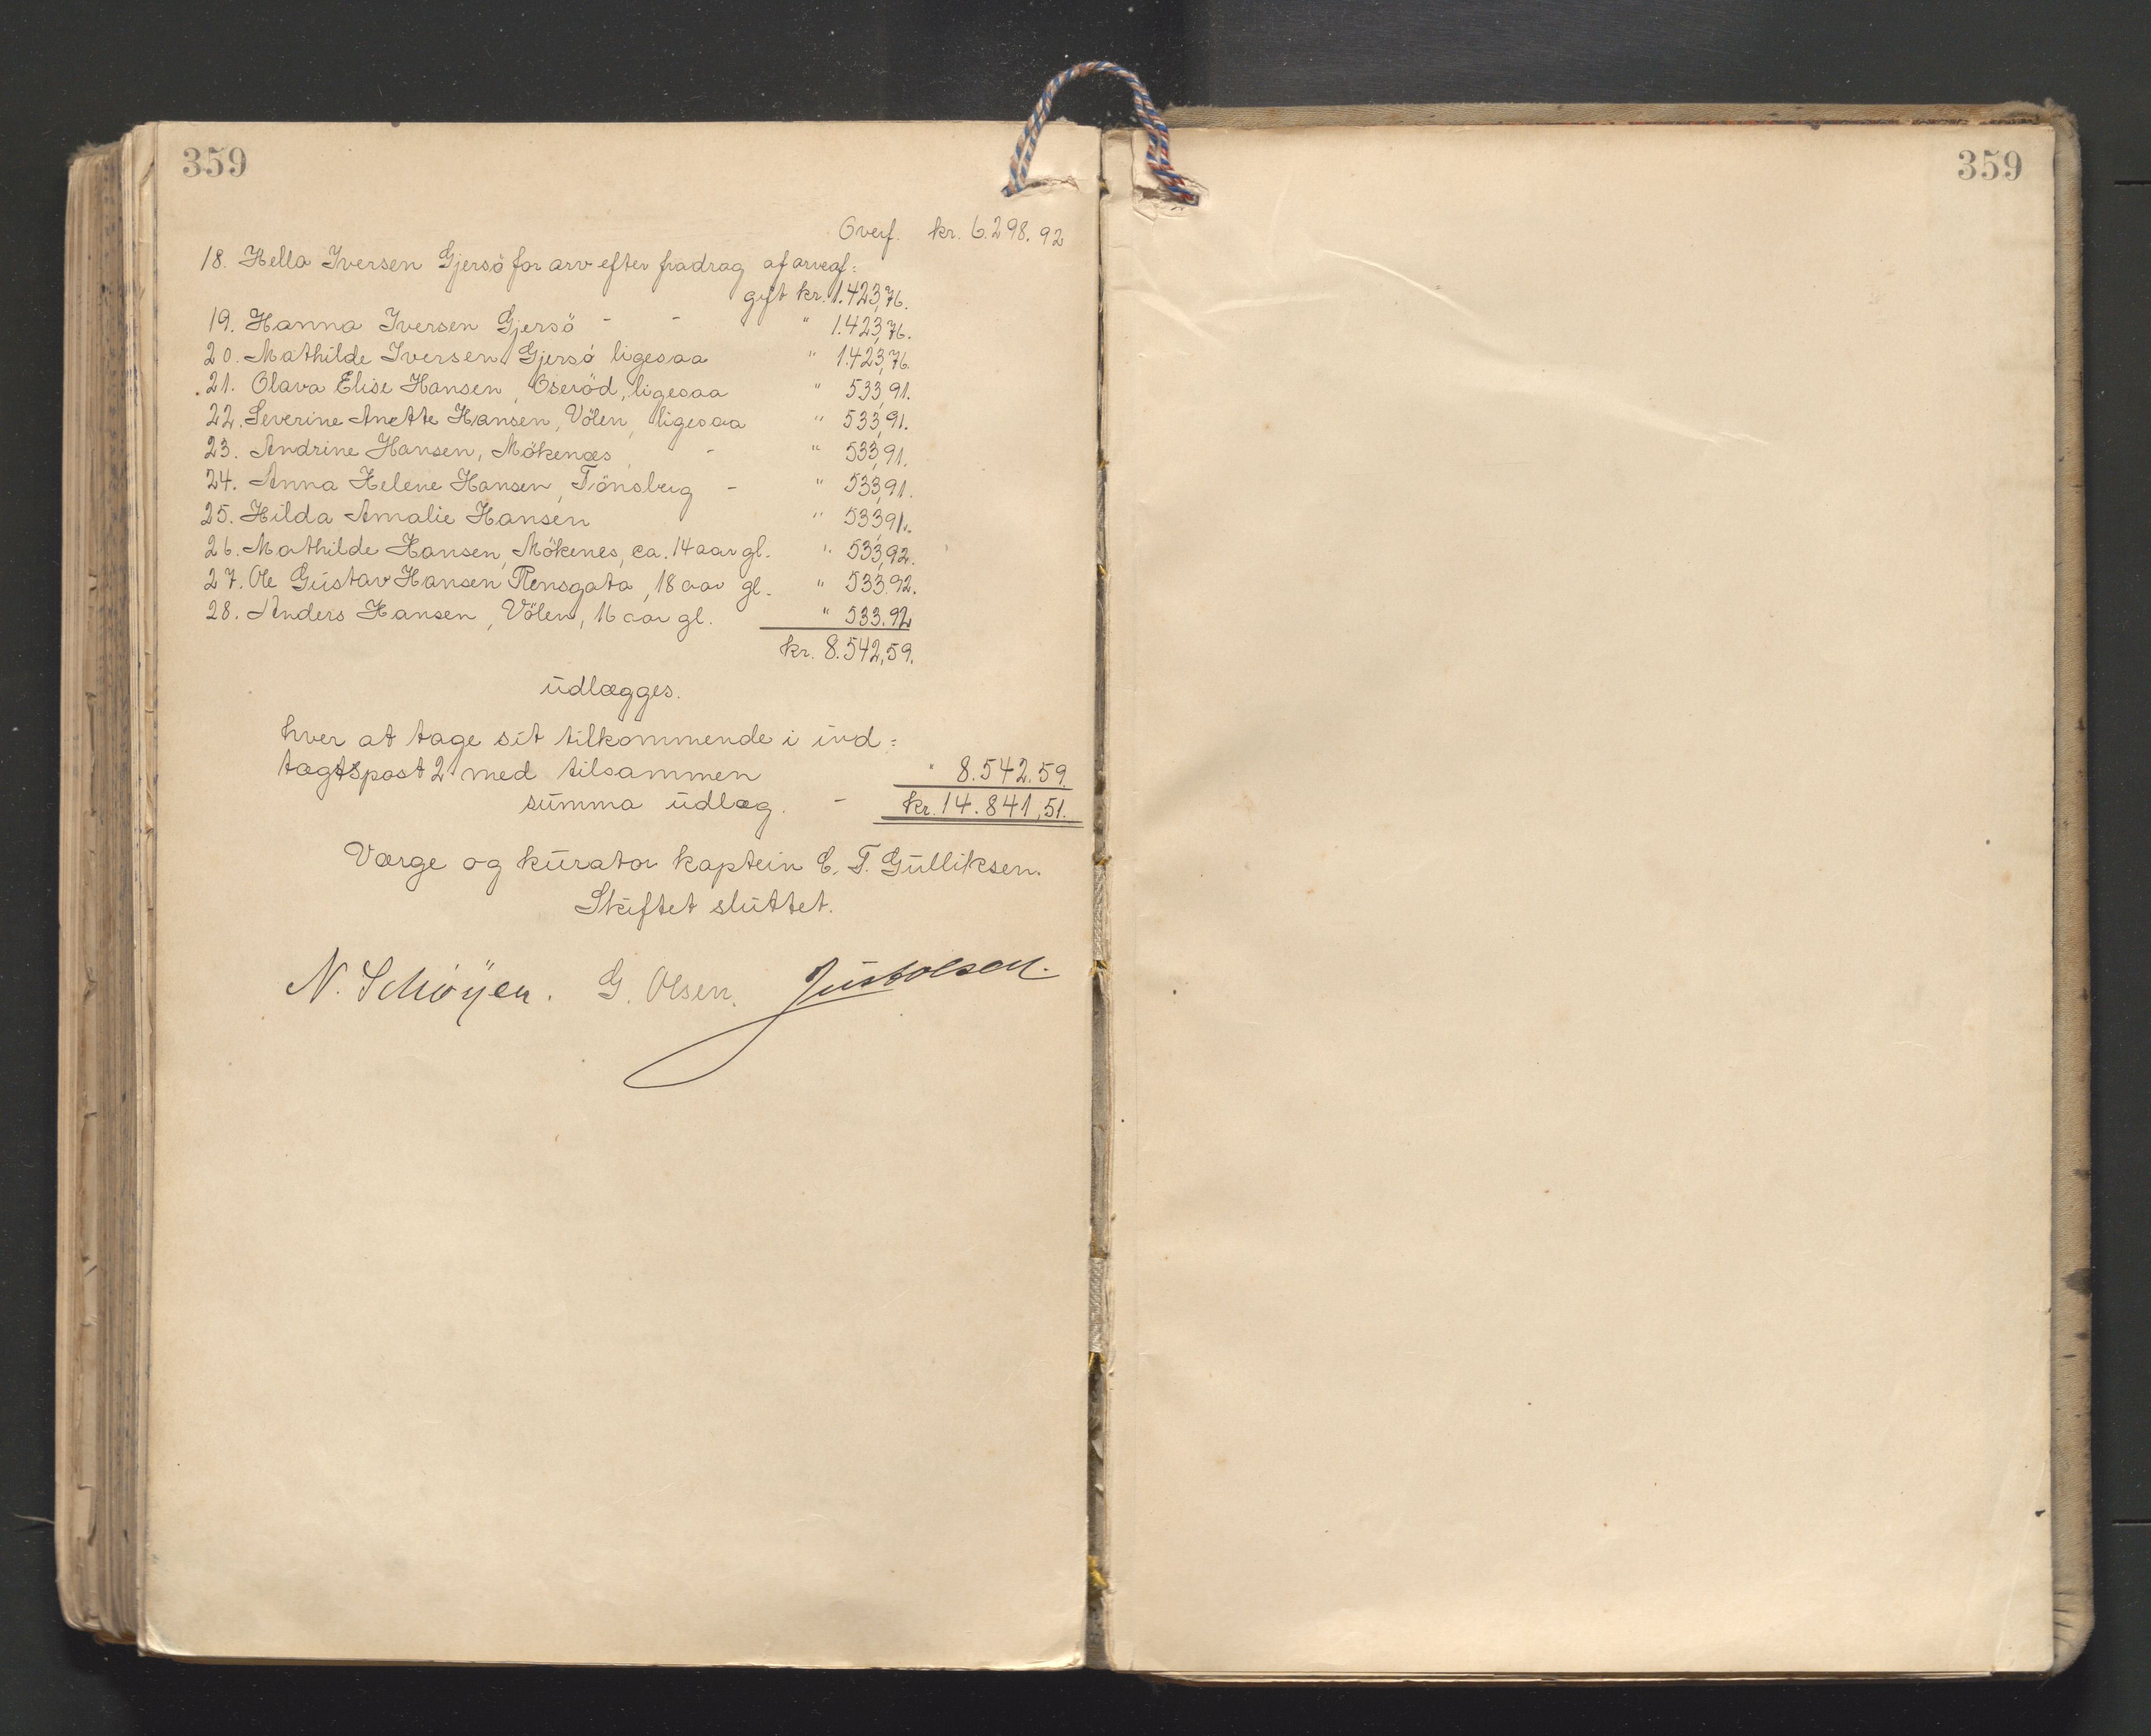 359
Overf. kr. 6.298.92
18. Hella Iversen Gjersö for arv efter fradrag af arveaf=
gift kr. 1.423,76.
19. Hanna Iversen Gjersö - - " 1.423,76.
20. Mathilde Iversen Gjersö ligesaa " 1.423,76.
21. Olava Elise Hansen, Oseröd, ligesaa " 533,91.
22. Severine Anette Hansen, Völen, ligesaa " 533,91.
23. Andrine Hansen, Mökenæs, - " 533,91.
24. Anna Helene Hansen, Tönsberg - " 533,91.
25. Hilda Amalie Hansen " 533,91.
26. Mathilde Hansen, Mökenes, ca. 14 aar gl. " 533,92.
27. Ole Gustav Hansen, 18 aar gl. " 533.92.
28. Anders Hansen, Völen, 16 aar gl. " 533.92
kr. 8.542,59.
udlægges.
hver at tage sit tilkommende i ind=
tægtspost 2 med tilsammen " 8.542.59.
summa udlæg. - kr. 14.841,51.
Værge og kurator kaptein E. T. Gulliksen.
Skiftet sluttet.
N. Schöyen. G. Olsen. Just Olsen.
359